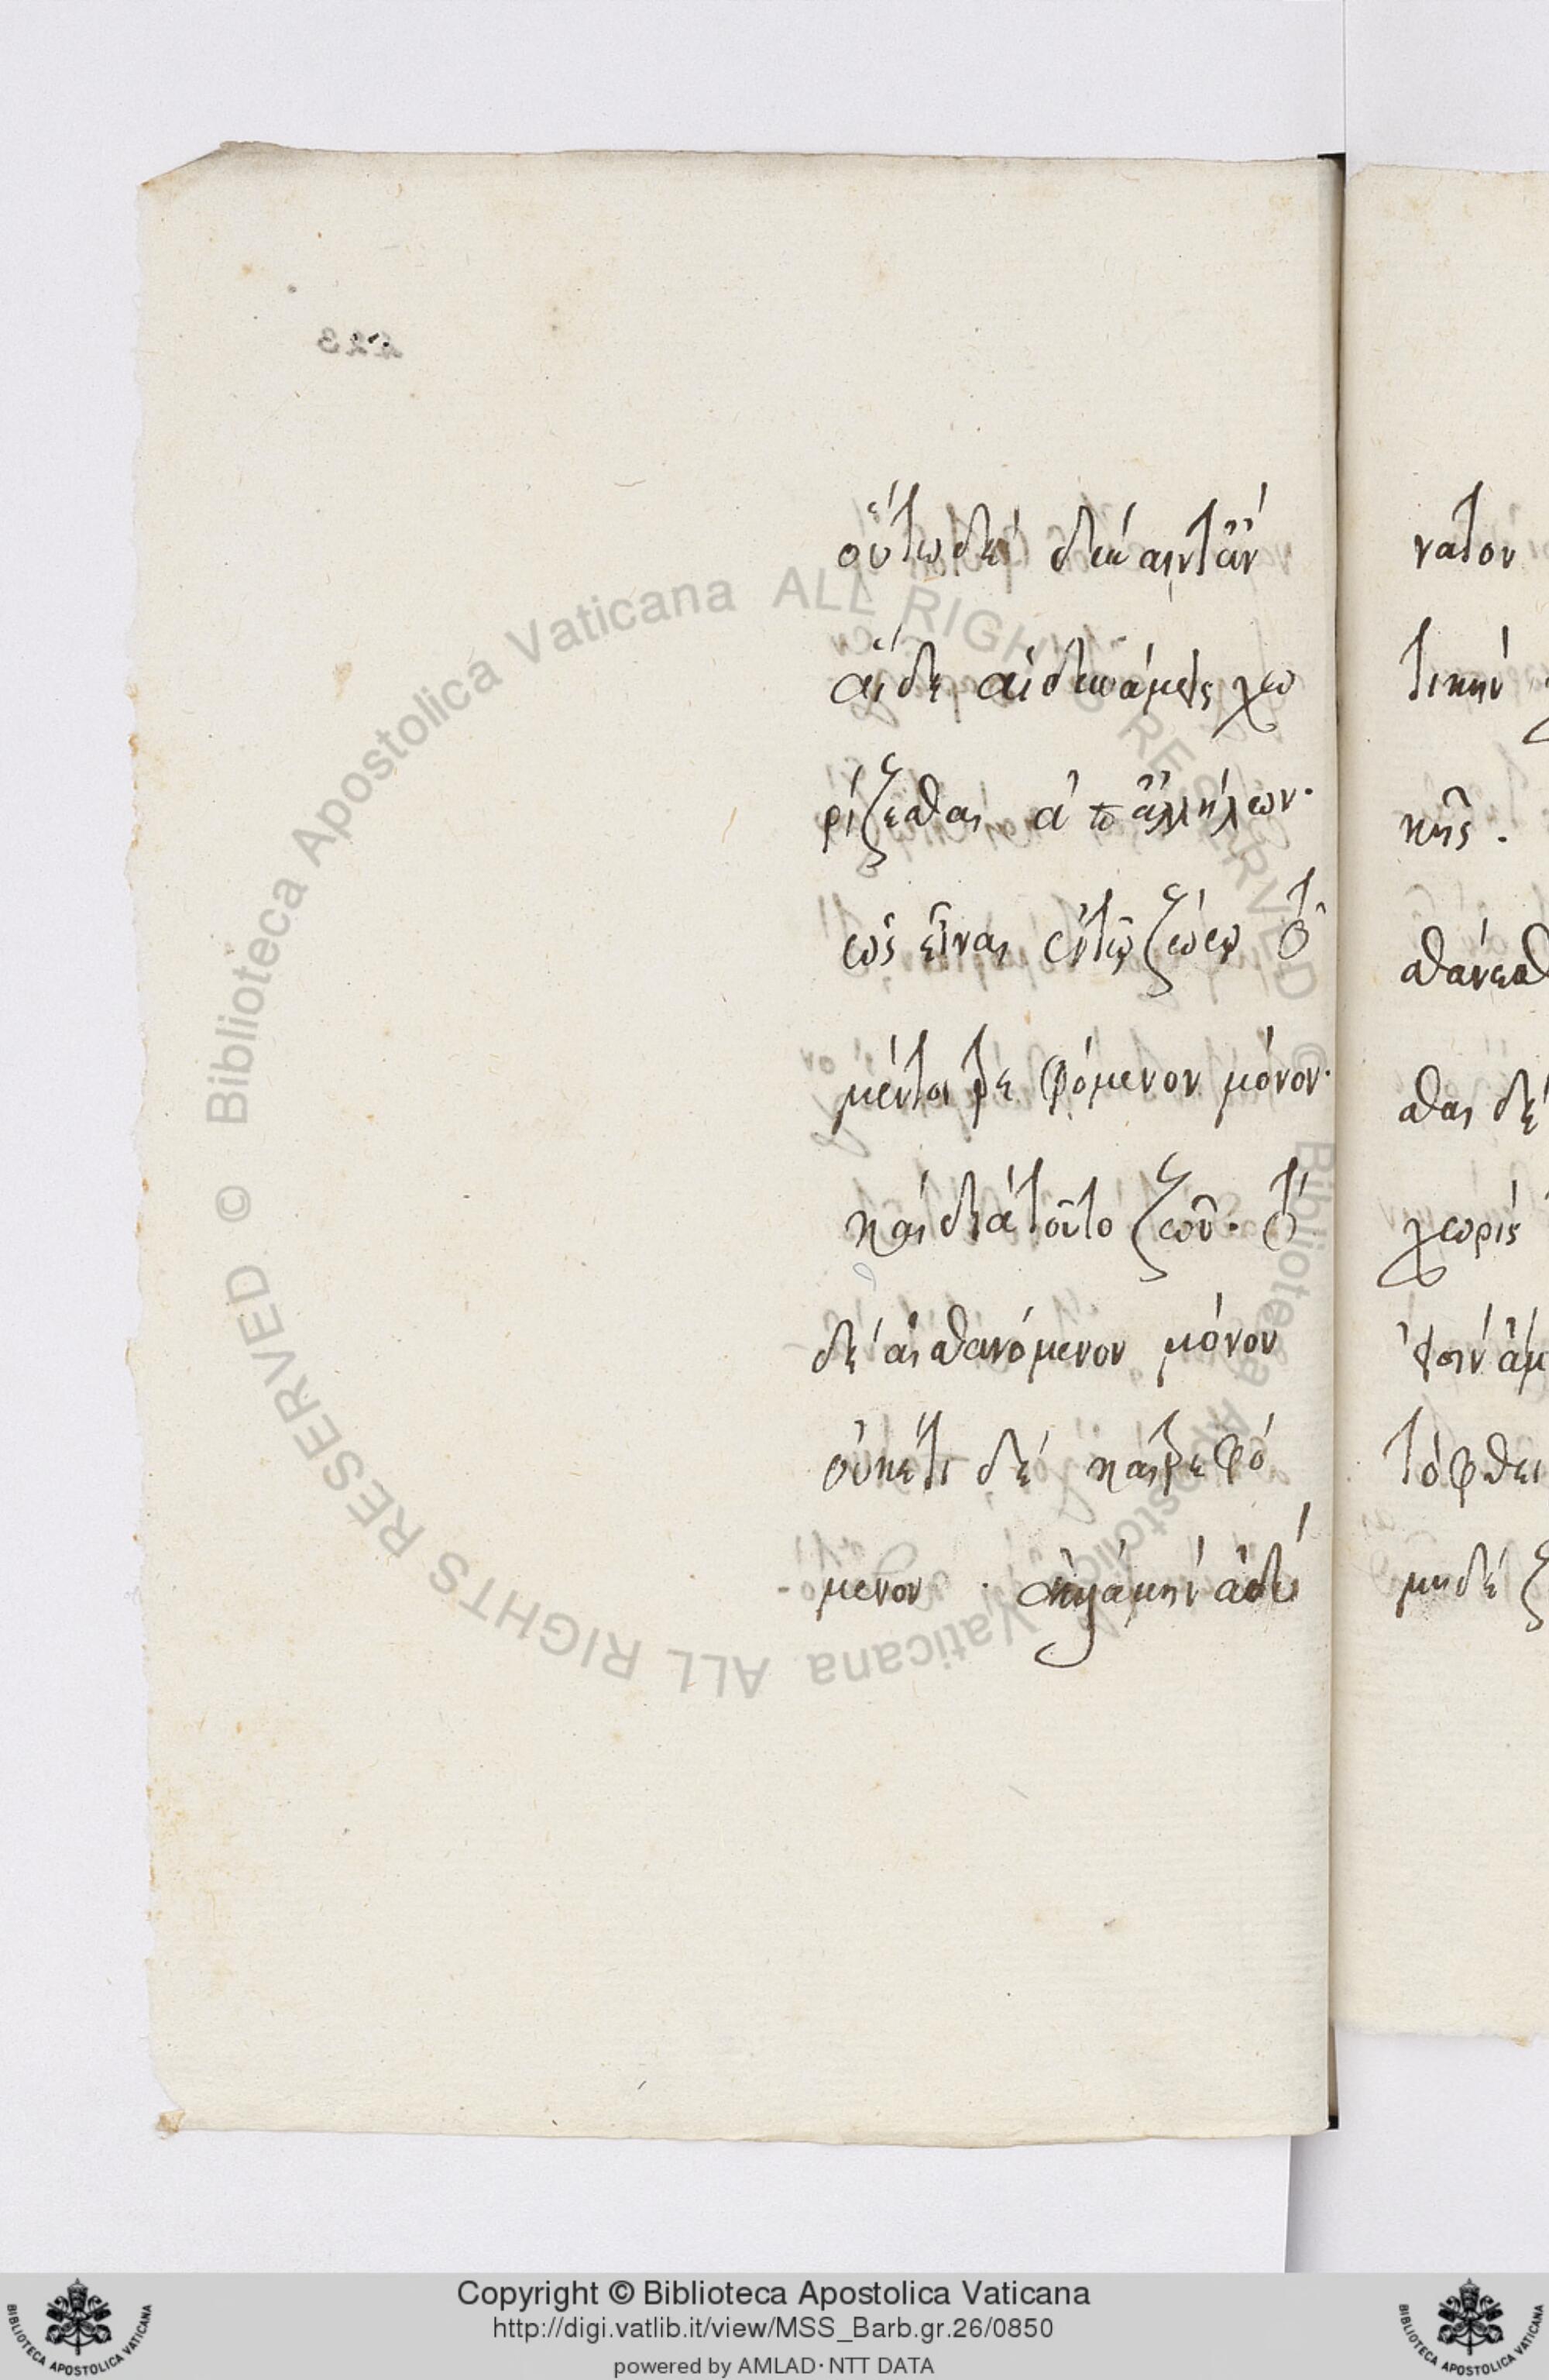 οὕτω δεὶ δεκαινταὺν
αἵ δε αἱ δυνάμεις χω
ρίζεσθαι ἀπ ἀλλήλων.
ὡς εἶναι ἐν τῷ ζώῳ τὸ
μέντοι τρεφόμενον μόνον.
καὶ διὰ τοῦτο ζῶν. τὸ
δὲ αἰσθανόμενον μόνον
οὐκέτι δὲ καὶ τρεφό
μενον. ἀλλὰ μὴν ἀδύ
νατον
τικὴν
κῆς.
σθάνεσθ
σθαι δὲ
χωρὶς
τὸ φθει
μηδὲ ζ
223
© Biblioteca Apostolica Vaticana ALL RIGHTS RESERVED
© Biblioteca Apostolica Vaticana ALL RIGHTS RESERVED
Copyright © Biblioteca Apostolica Vaticana
http://digi.vatlib.it/view/MSS_Barb.gr.26/0850
powered by AMLAD·NTT DATA
BIBLIOTECA APOSTOLICA VATICANA
BIBLIOTECA APOSTOLICA VATICANA